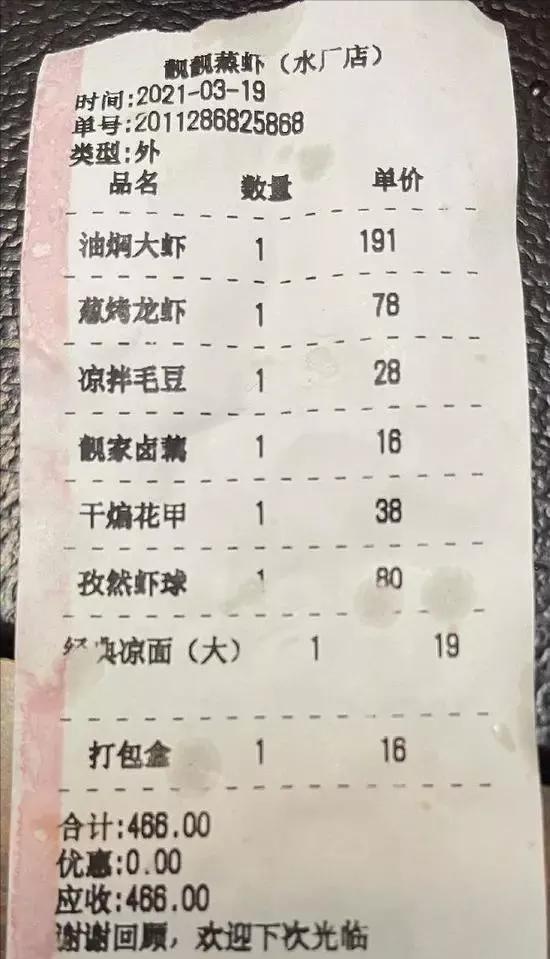 靓靓蒸虾（水厂店）
时间:2021-03-19
单号:2011286825868
类型:外
品名 数量 单价
油焖大虾 1 191
葱烤龙虾 1 78
凉拌毛豆 1 28
靓家卤藕 1 16
干煸花甲 1 38
孜然虾球 1 80
经典凉面（大） 1 19
打包盒 1 16
合计:466.00
优惠:0.00
应收:466.00
谢谢回顾，欢迎下次光临